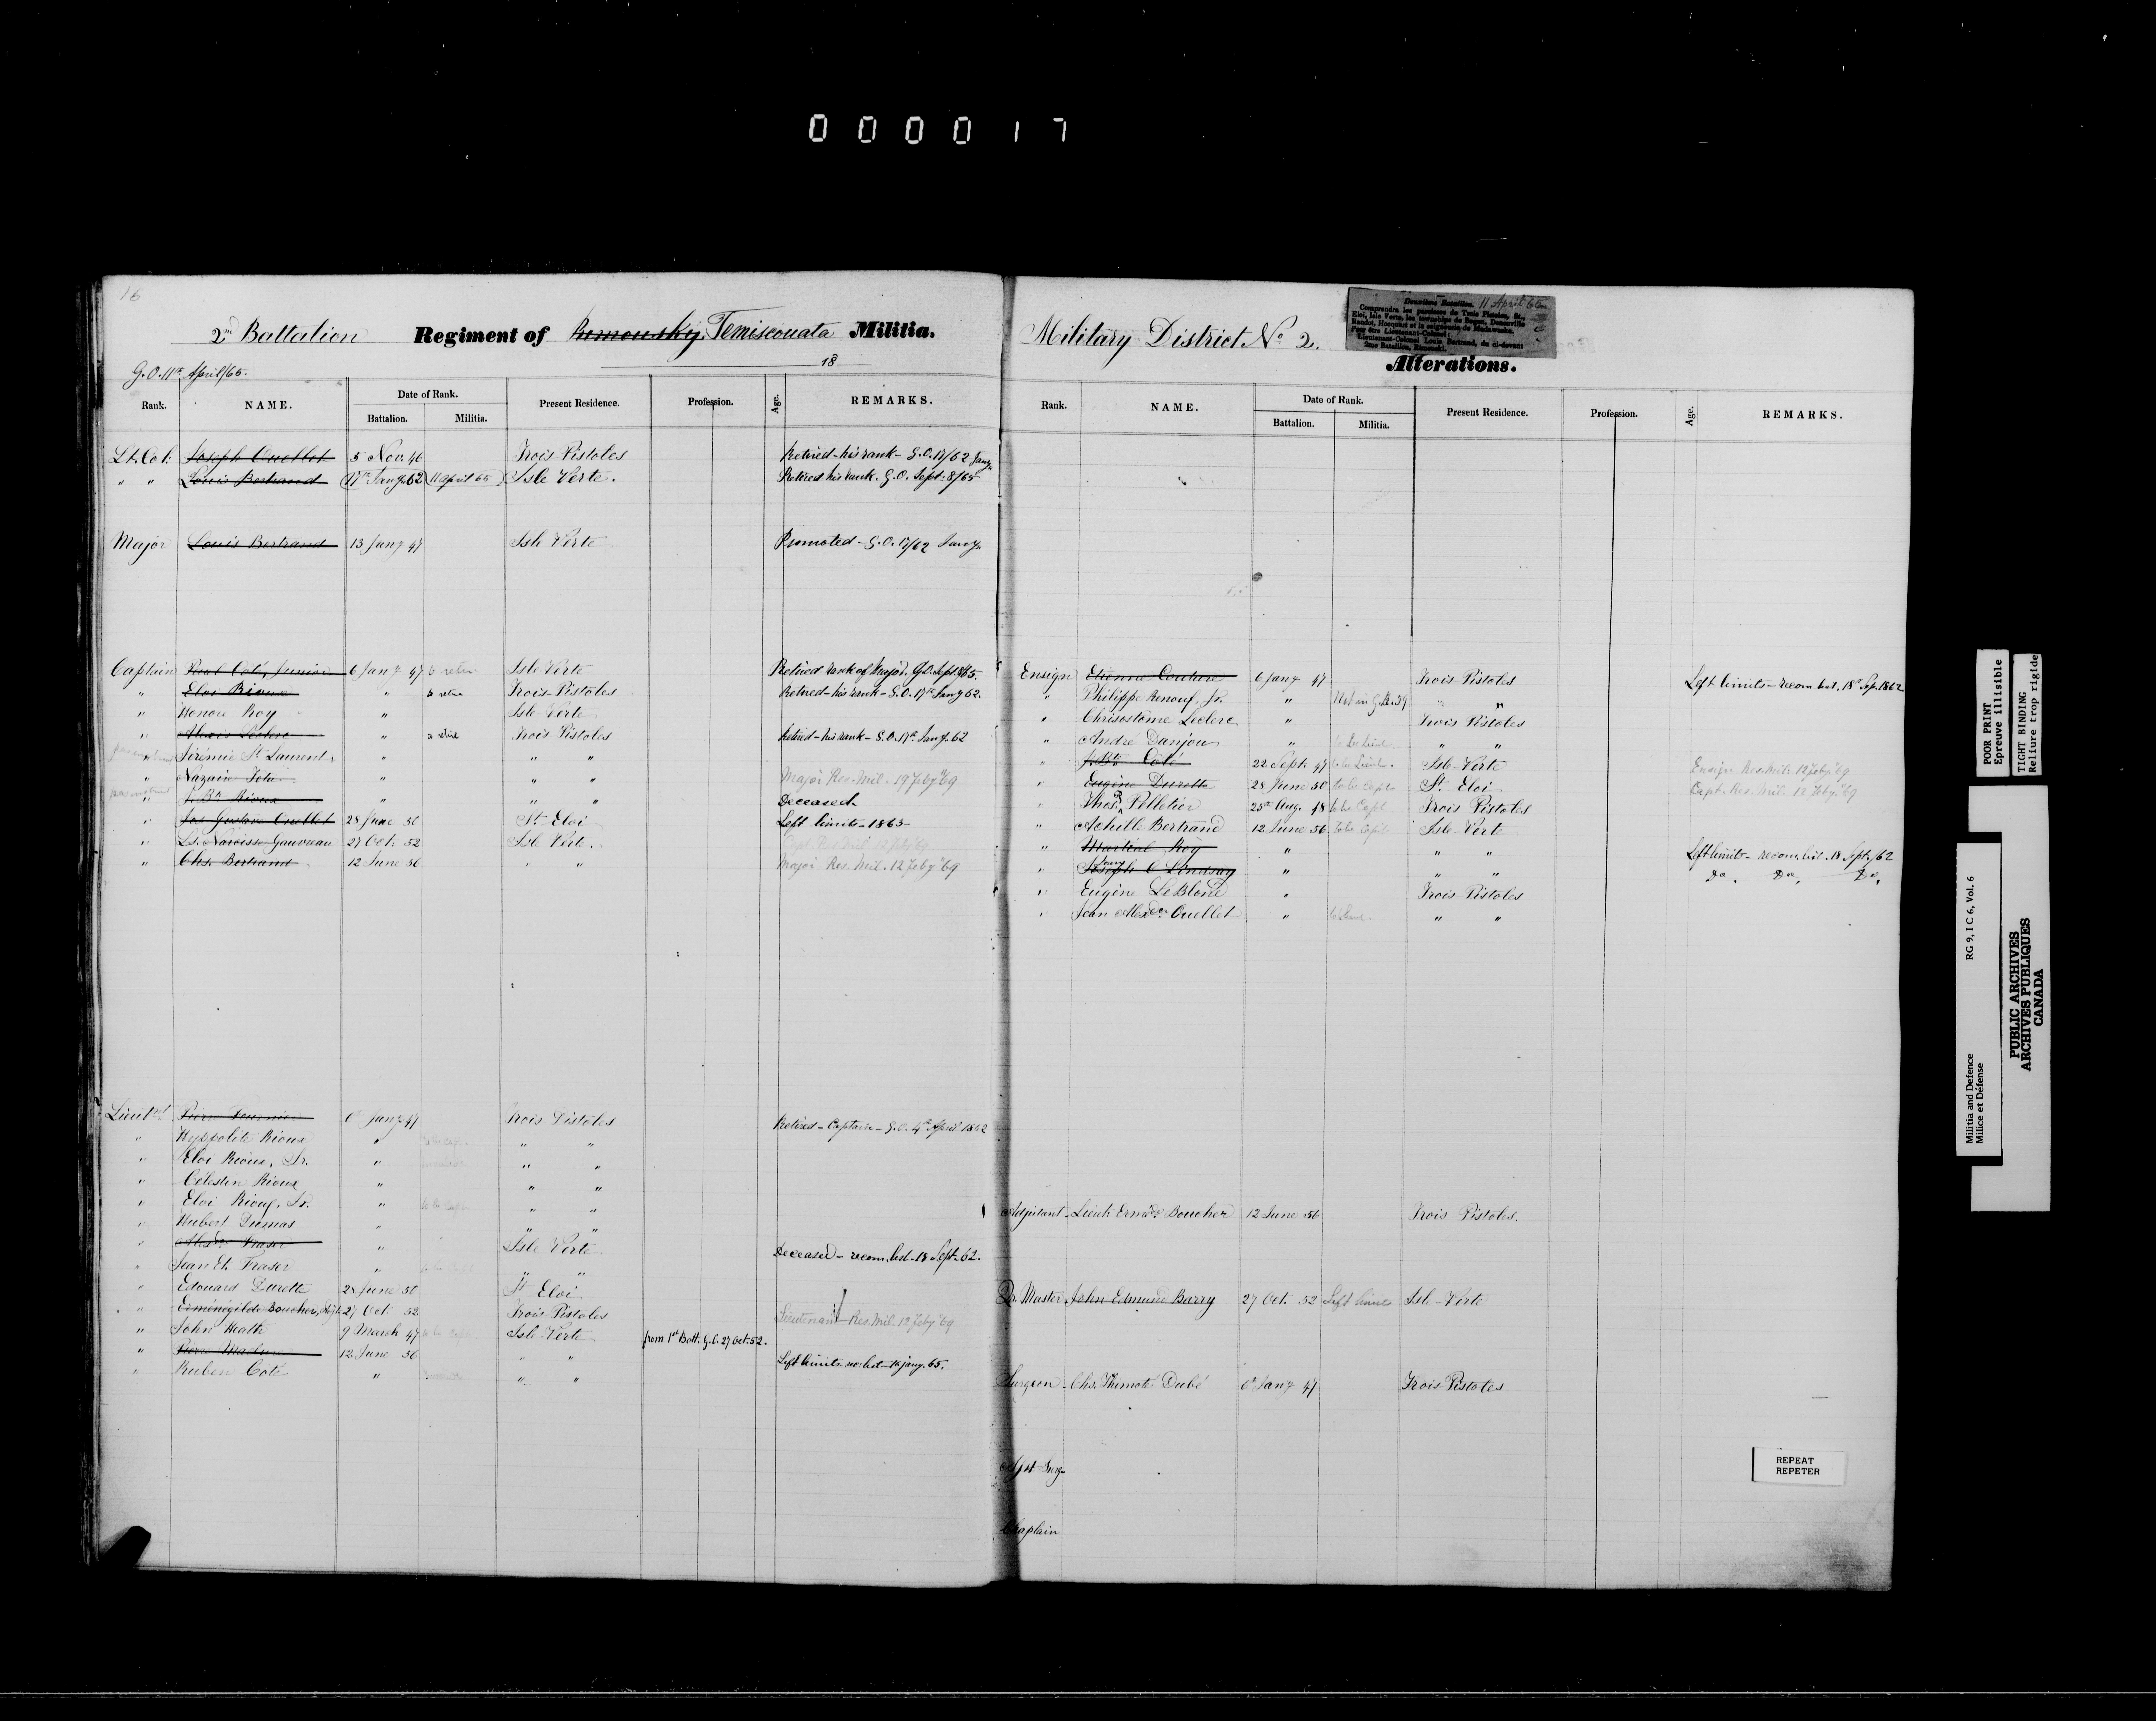 000017
16
2nd Battalion Regiment of Rimousky Temiscouata Militia.
18
G.O. 11th April/65.
Rank. NAME. Date of Rank. Present Residence. Profession. Age. REMARKS.
Battalion. Militia.
Lt. Col. Joseph Ouellet 5 Nov. 46 Trois Pistoles Retired - his rank - G.O. 17/62 Jany.
" " Louis Bertrand 17th Jany. 62 11 April 65 Isle Verte. Retired his rank. G.O. Sept. 8/65
Major Louis Bertrand 13 Jany 47 Isle Verte Promoted - G.O. 17/62 Jany.
Captain Paul Coté, Junior 6 Jany 47 to retire Isle Verte Retired rank of Major. G.O. Sept. 8/65.
" Eloi Rioux " to retire Trois Pistoles Retired - his rank - G.O. 17th Jany 62.
" Honoré Roy " Isle Verte
" Alexis Leclerc " to retire Trois Pistoles Retired - his rank - G.O. 17th Jany. 62
" Jérémie St. Laurent " " "
" Nazaire Têtu " " " Major Res. Mil. 19 Feby '69
" J. Bte. Rioux " " " Deceased
" Jos Gustave Ouellet 28 June 50 St. Eloi Left limits - 1863
" Ls. Narcisse Gauvreau 27 Oct. 52 Isle Verte. Capt. Res. Mil. 12 Feby '69
" Chs. Bertrand 12 June 56 " " Major Res. Mil. 12 Feby '69
Lieutnt. Pierre Fournier 6 Jany 47 Trois Pistoles Retired - Captain - G.O. 4th April 1862
" Hyppolite Rioux " " "
" Eloi Rioux, Sr. " " "
" Célestin Rioux " " "
" Eloi Riouf, Jr. " " "
" Hubert Dumas " " "
" Alexdre. Fraser " Isle Verte Deceased - recom. list - 18 Sept. 62.
" Jean Et. Fraser " " "
" Edouard Durette 28 June 50 St Eloi
" Erménégilde Boucher, Adjt. 27 Oct. 52 Trois Pistoles Lieutenant Res. Mil. 12 Feby '69
" John Heath 9 March 47 Isle Verte from 1st Batt. G.O. 27 Oct. 52.
" 12 June 56 " " Left limits
" Ruben Coté " " "
Military District No. 2.
11 April 65
Deuxième Bataillon.
Comprendra les paroisses de Trois Pistoles, St.
Eloi, Isle Verte, les townships de Begon, Denonville
Randot, Hocquart et la seigneurie de Madawaska.
Pour être Lieutenant-Colonel:
Lieutenant-Colonel Louis Bertrand, du ci-devant
2me Bataillon, Rimouski.
Alterations.
Rank. NAME. Date of Rank. Present Residence. Profession. Age. REMARKS.
Battalion. Militia.
Ensign Etienne Couture 6 Jany 47 Trois Pistoles Left limits - recom. list. 18th Sep. 1862
" Philippe Renouf, Jr. " " "
" Chrisostôme Leclerc " Trois Pistoles
" André Danjou " to be Lieut. " "
" J. Bte. Coté 22 Sept. 47 to be Lieut. Isle Verte Ensign Res. Mil. 12 Feby '69
" Eugène Durette 28 June 50 to be Capt. St. Eloi Capt. Res. Mil. 12 Feby '69
" Thos. P. Pelletier 25th Aug. 48 to be Capt Trois Pistoles
" Achille Bertrand 12 June 56 to be Capt Isle Verte
" Martial Roy " " " Left limits - recom. list. 18 Sept./62
" Joseph C Lindsay " " " Do. Do. Do.
" Eugène LeBlond " Trois Pistoles
" Jean Alexdre. Ouellet " " "
Adjutant Lieut. Ermdre. Boucher 12 June 56 Trois Pistoles.
Qr. Master John Edmund Barry 27 Oct. 52 Left limits Isle Verte
Surgeon Chs. Thimoté Dubé 6 Jany 47 Trois Pistoles
Asst. Surg.
Chaplain
POOR PRINT
Epreuve illisible
TIGHT BINDING
Reliure trop rigide
Militia and Defence RG 9, I C 6, Vol. 6
Milice et Défense
PUBLIC ARCHIVES
ARCHIVES PUBLIQUES
CANADA
REPEAT
REPETER